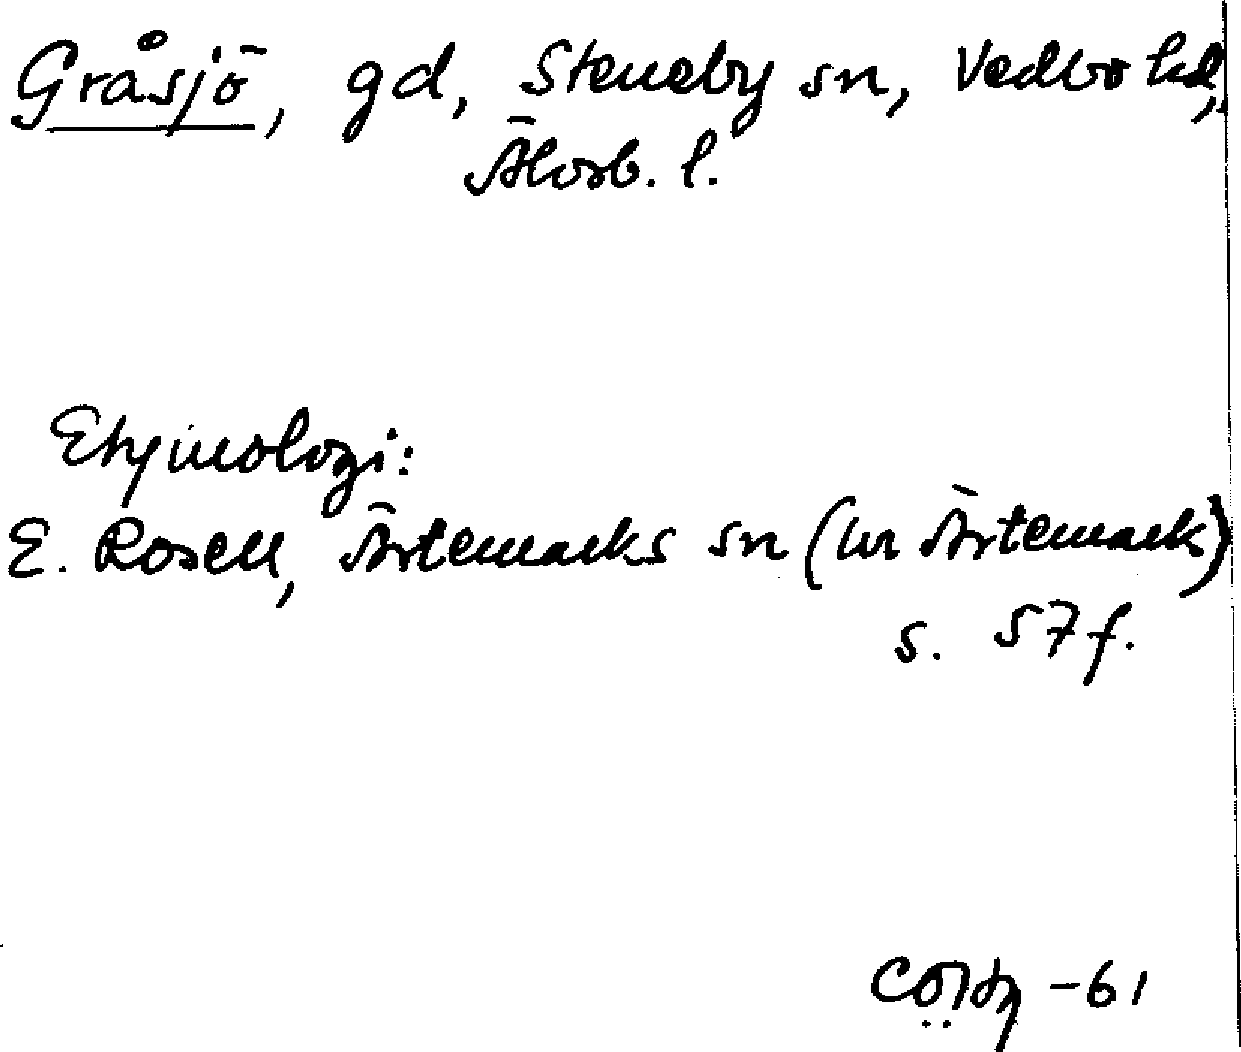 Gråsjö, gd, Steneby sn, Vedbo hd,
Älvsb. l.
Etymologi:
E. Rosell, Ärtemarks sn (ur Ärtemark)
s. 57 f.
-61